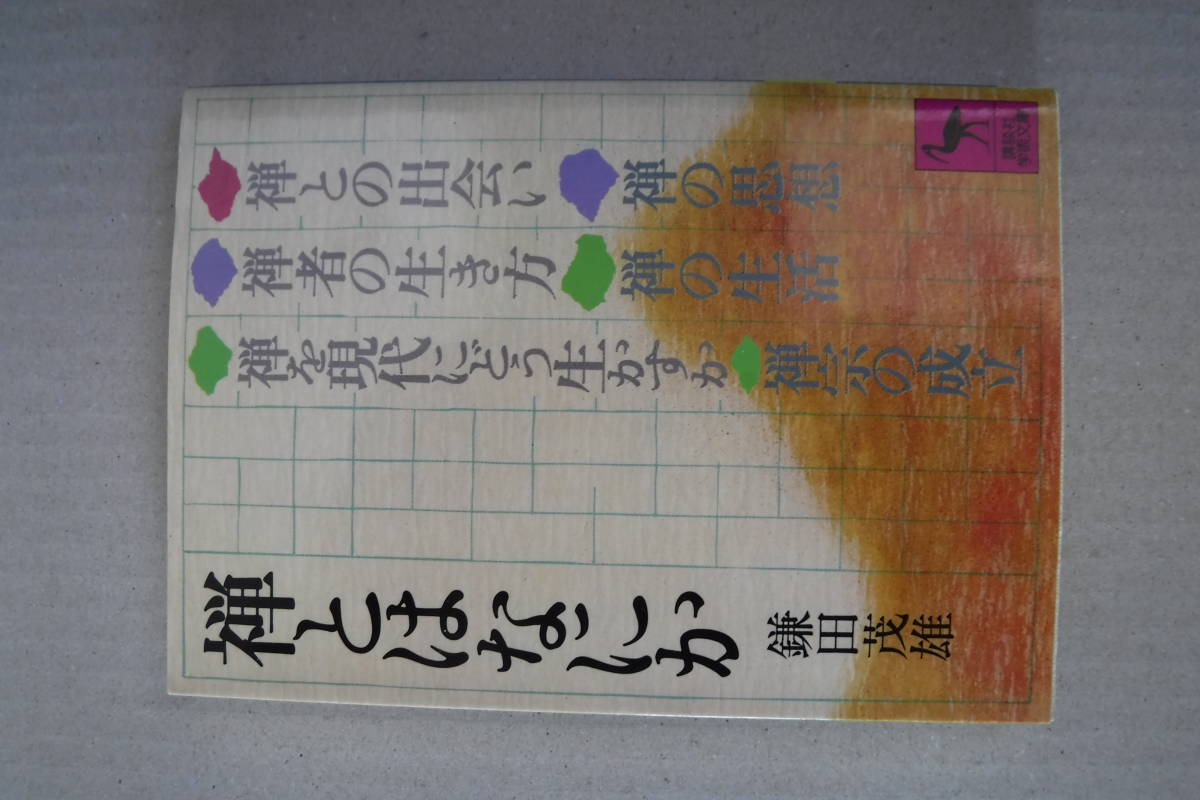 禅との出会い
禅の思想
禅者の生き方
禅の生活
禅を現代にどう生かすか
禅宗の成立
禅とはなにか
鎌田茂雄
講談社
学術文庫